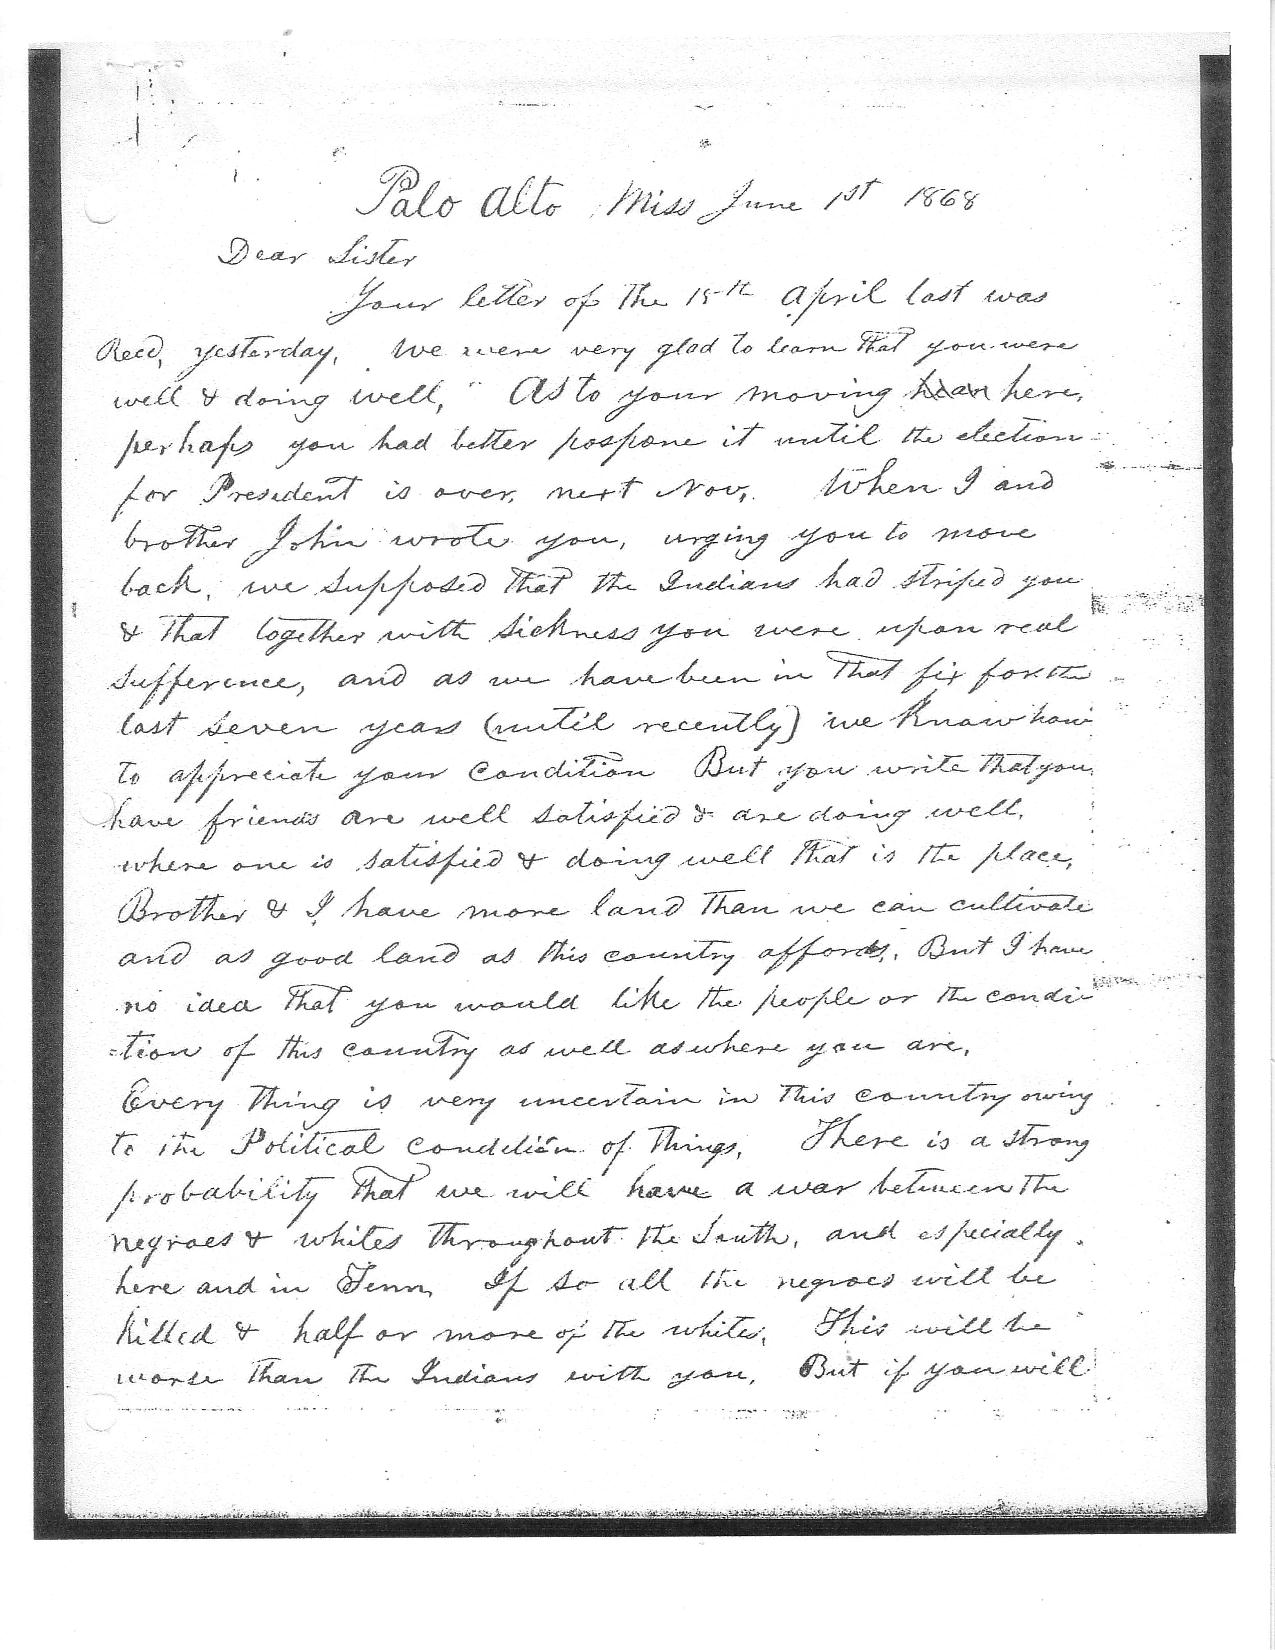 Palo Alto Miss June 1st 1868
Dear Sister
Your letter of the 15th April last was
Recd, yesterday, We were very glad to learn that you were
well & doing well, As to your moving here,
perhaps you had better pospone it until the election
for President is over, next Nov, When I and
brother John wrote you, urging you to move
back, we supposed that the Indians had striped you
& that together with sickness you were upon real
sufference, and as we have been in that fix for the
last seven years (until recently) we know how
to appreciate your condition But you write that you
have friends are well satisfied & are doing well,
where one is satisfied & doing well that is the place,
Brother & I have more land than we can cultivate
and as good land as this country affords, But I have
no idea that you would like the people or the condi-
=tion of this country as well as where you are,
Every thing is very uncertain in this country owing
to the Political condition of things, There is a strong
probability that we will have a war between the
negroes & whites throughout the South, and especially
here and in Tenn, If so all the negroes will be
killed & half or more of the whites, This will be
worse than the Indians with you, But if you will